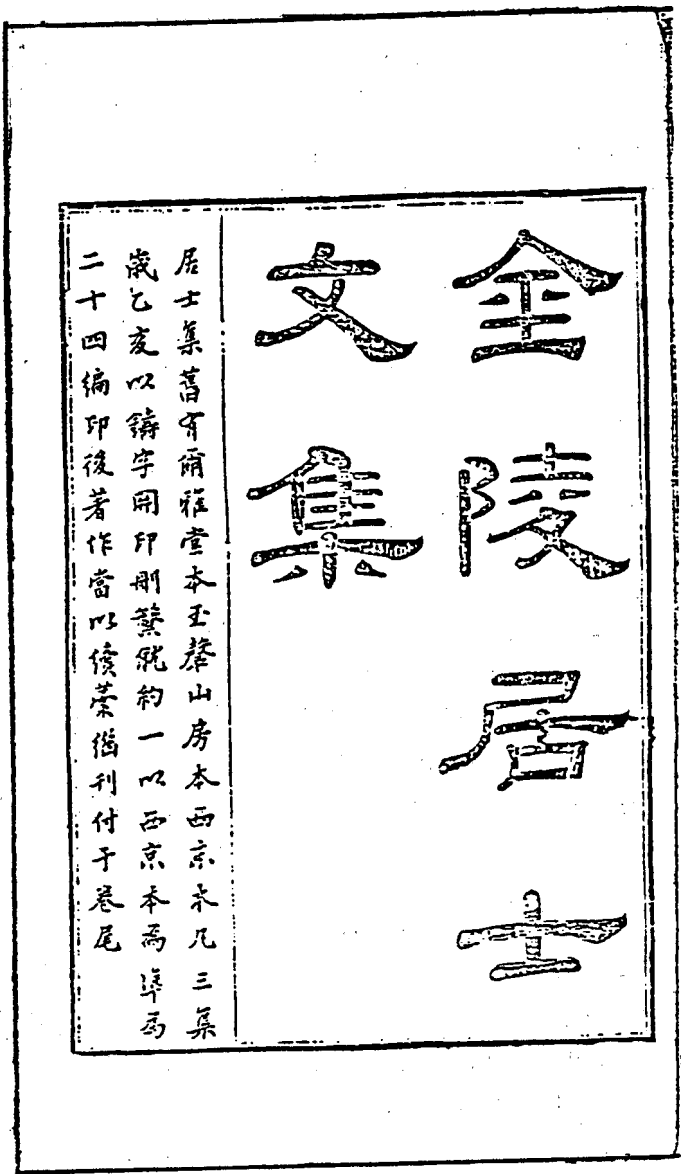 金陵居士
文集
居士集舊有爾雅堂本玉磬山房本西京本凡三集
歲乙亥以鑄字開印刪繁就約一以西京本爲準爲
二十四編印後著作當以續藁繼刊付于卷尾